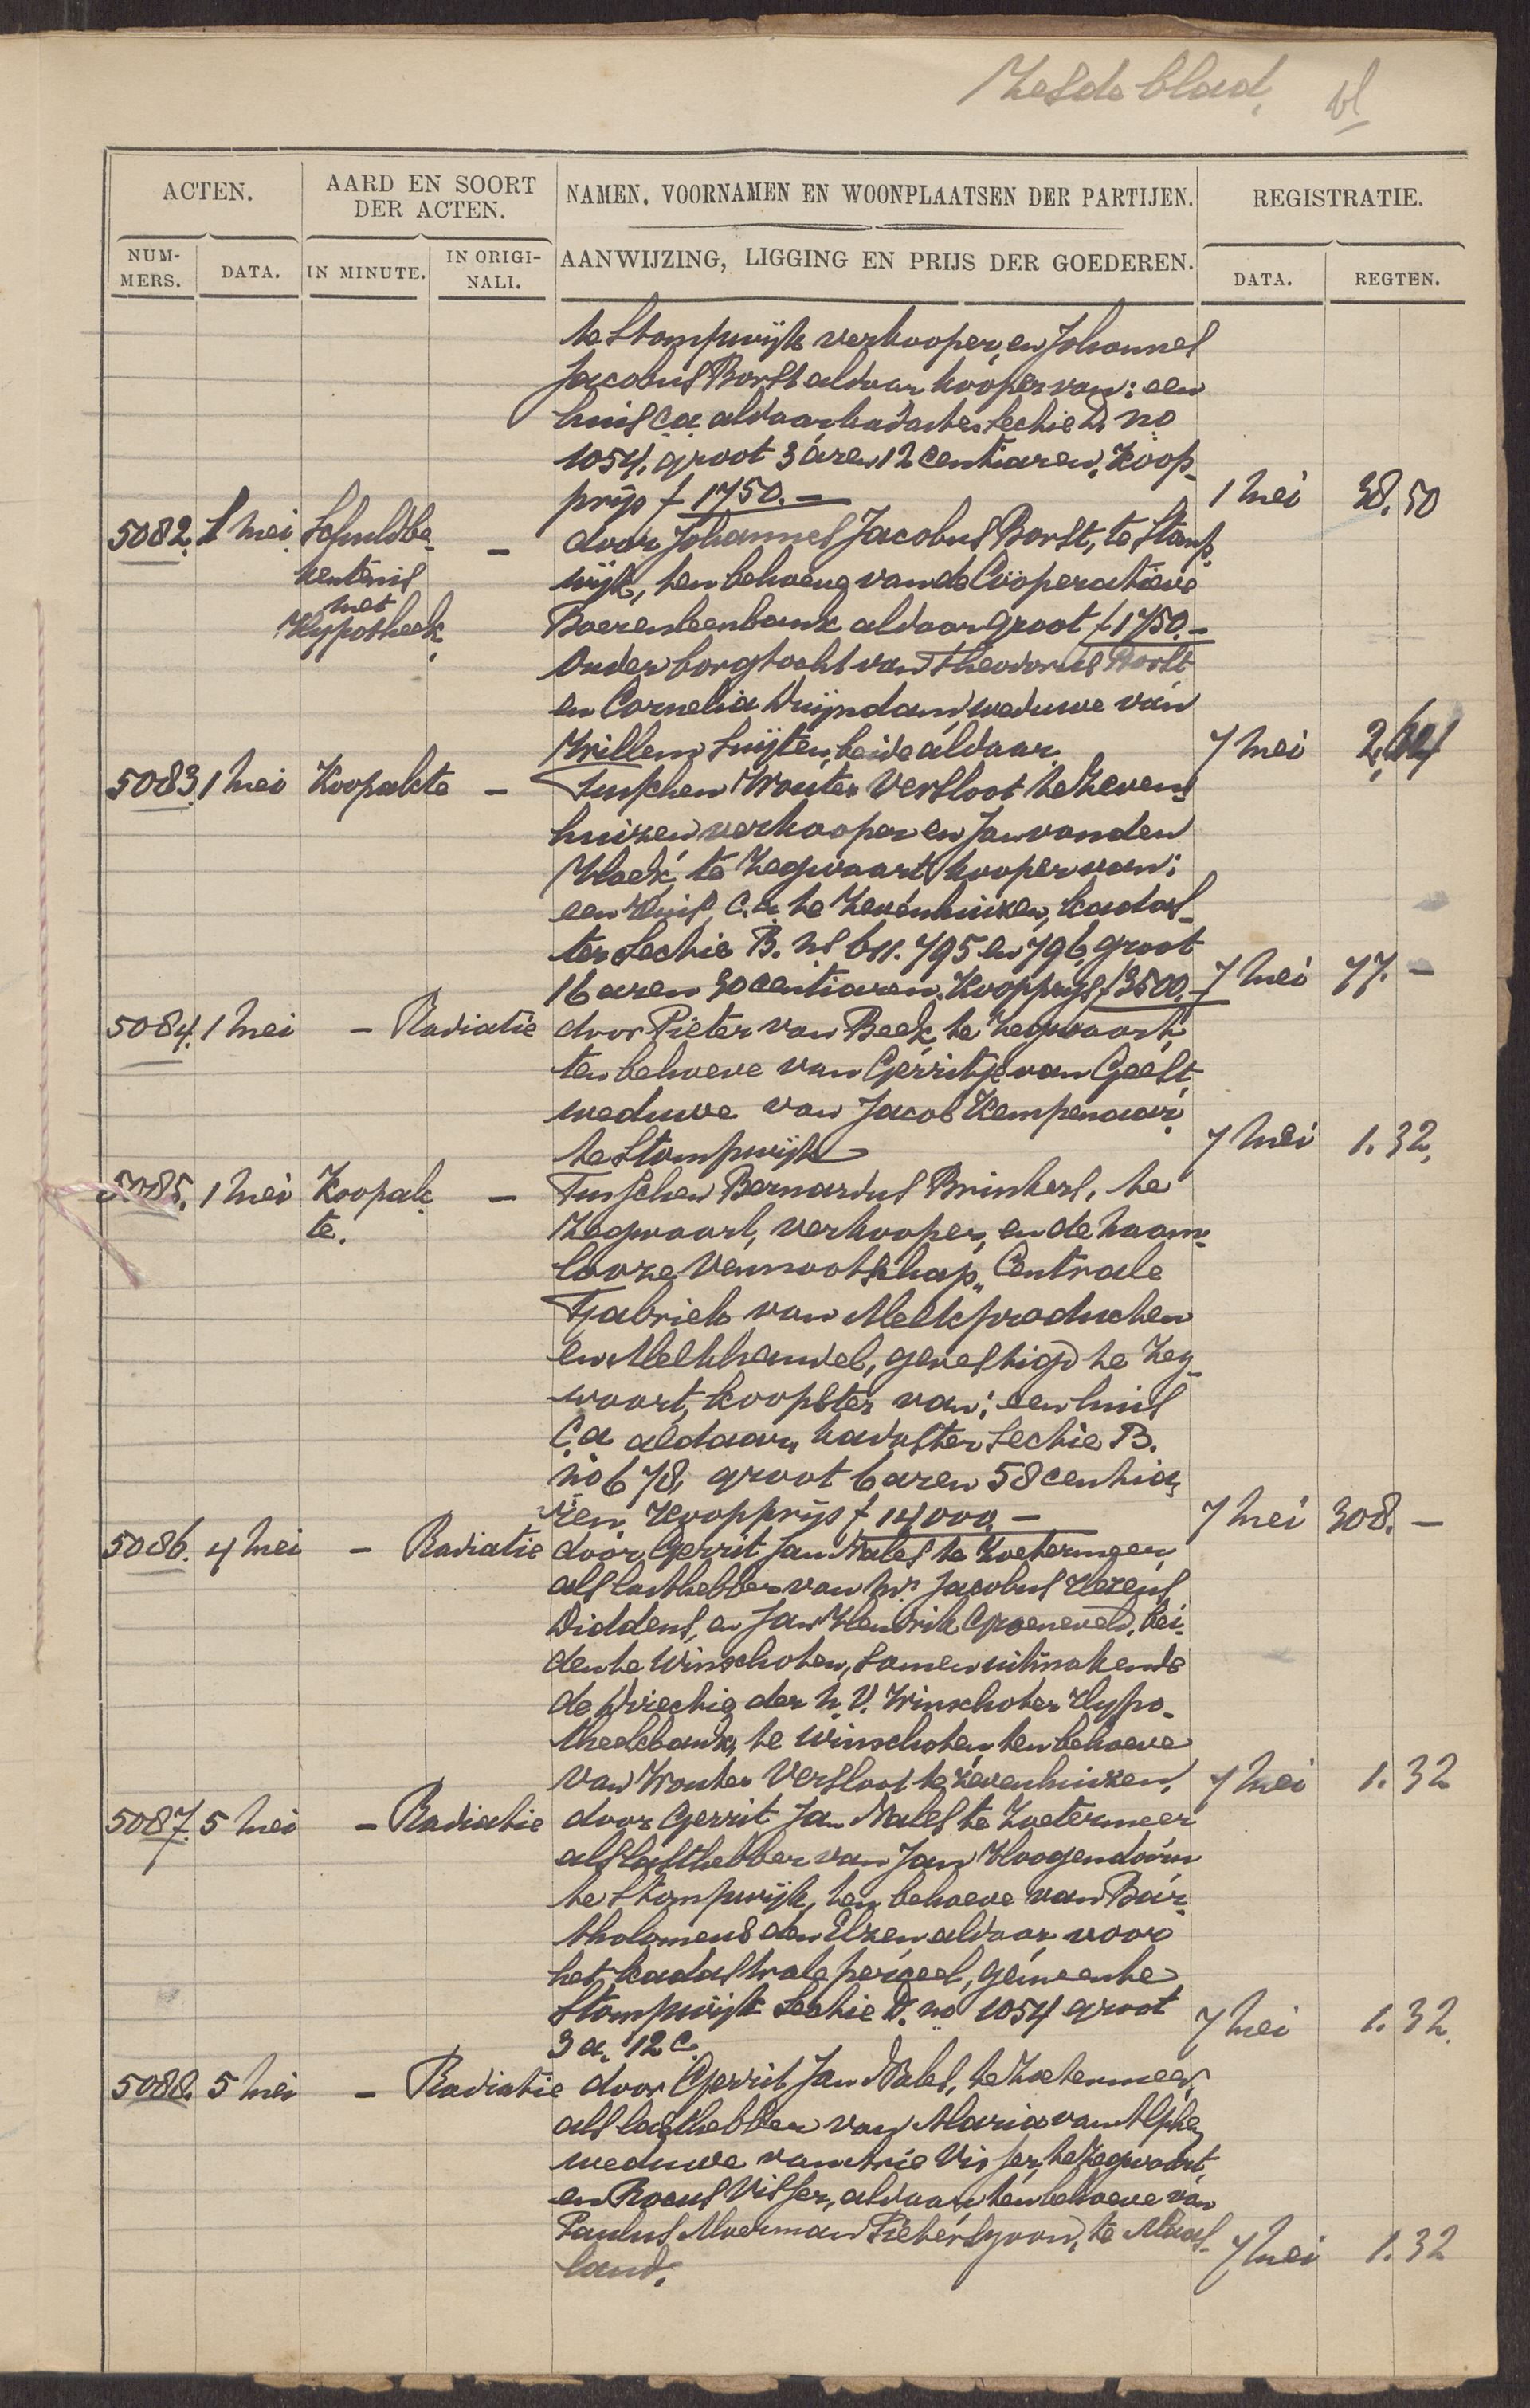 Zesde blad.
ACTEN.
AARD EN SOORT
DER ACTEN.
NAMEN, VOORNAMEN EN WOONPLAATSEN DER PARTIJEN.
REGISTRATIE.
NUM-
MERS.
DATA.
IN MINUTE.
IN ORIGI-
NALI.
AANWIJZING, LIGGING EN PRIJS DER GOEDEREN.
DATA.
REGTEN.
te Stompwijk verkooper, en Johannes
Jacobus Borst aldaar kooper van: een
huis c.a. aldaar, kadaster sectie D. no
1054, groot 3 aren 12 centiaren, Koop-
prijs f 1750.— 1 Mei 38.50
5082. 1 Mei. Schuldbe- — door Johannes Jacobus Borst, te Stomp-
kentenis wijk, ten behoeve van de Coöperatieve
met
Hypotheek. Boerenleenbank aldaar groot f 1750.—
Onder borgtocht van Theodorus Borst
en Cornelia Duijndam, weduwe van
Willem Luijten, beide aldaar. 7 Mei
5083. 1 Mei Koopakte — Tusschen Wouter Versloot te Zeven-
huizen verkooper en Jan van den
Hoek, te Zegwaart kooper van:
een Huis, c.a. te Zevenhuizen, kadas-
ter Sectie B. Ns 611. 795 en 796, groot
16 aren 30 centiaren. Koopprijs f 3500.— 7 Mei 77.—
5084. 1 Mei — Radiatie door Pieter van Beek, te Zegwaart,
ten behoeve van Gerritje van Geest,
weduwe van Jacob Kempenaar,
te Stompwijk 7 Mei 1.32.
5085. 1 Mei Koopak- — Tusschen Bernardus Brinkers, te
te. Zegwaart, verkooper, en de Naam-
looze Vennootschap „Centrale
Fabriek van Melkproducten
en Melkhandel, gevestigd te Zeg-
waart, koopster van: een huis
c.a aldaar, kadaster Sectie B.
no 678, groot 6 aren 58 centia-
ren, Koopprijs f 14000.— 7 Mei 308.—
5086. 4 Mei — Radiatie door Gerrit Jan Nales te Zoetermeer,
als lasthebber van Mr. Jacobus
Diddens, en Jan Hendrik Groeneveld, bei-
den te Winschoten, samen uitmakende
de Directie der N.V. Winschoter Hypo-
theekbank, te Winschoten, ten behoeve
van Wouter Versloot te Zevenhuizen. 7 Mei 1.32
5087. 5 Mei — Radiatie door Gerrit Jan Nales te Zoetermeer
als lasthebber van Jan Hoogendoorn
te Stompwijk, ten behoeve van Bar-
tholomeus den Elzen, aldaar, voor
het kadastrale perceel, gemeente
Stompwijk Sectie D. no 1054 groot
3 a. 12 c. 7 Mei 1.32.
5088. 5 Mei — Radiatie door Gerrit Jan Nales, te Zoetermeer,
als lasthebber van Maria van Alphen
weduwe van Arie Visser, te Zegwaart,
en Rocus Visser, aldaar, ten behoeve van
Paulus Moerman Pieterszoon, te Maas-
land. 7 Mei 1.32